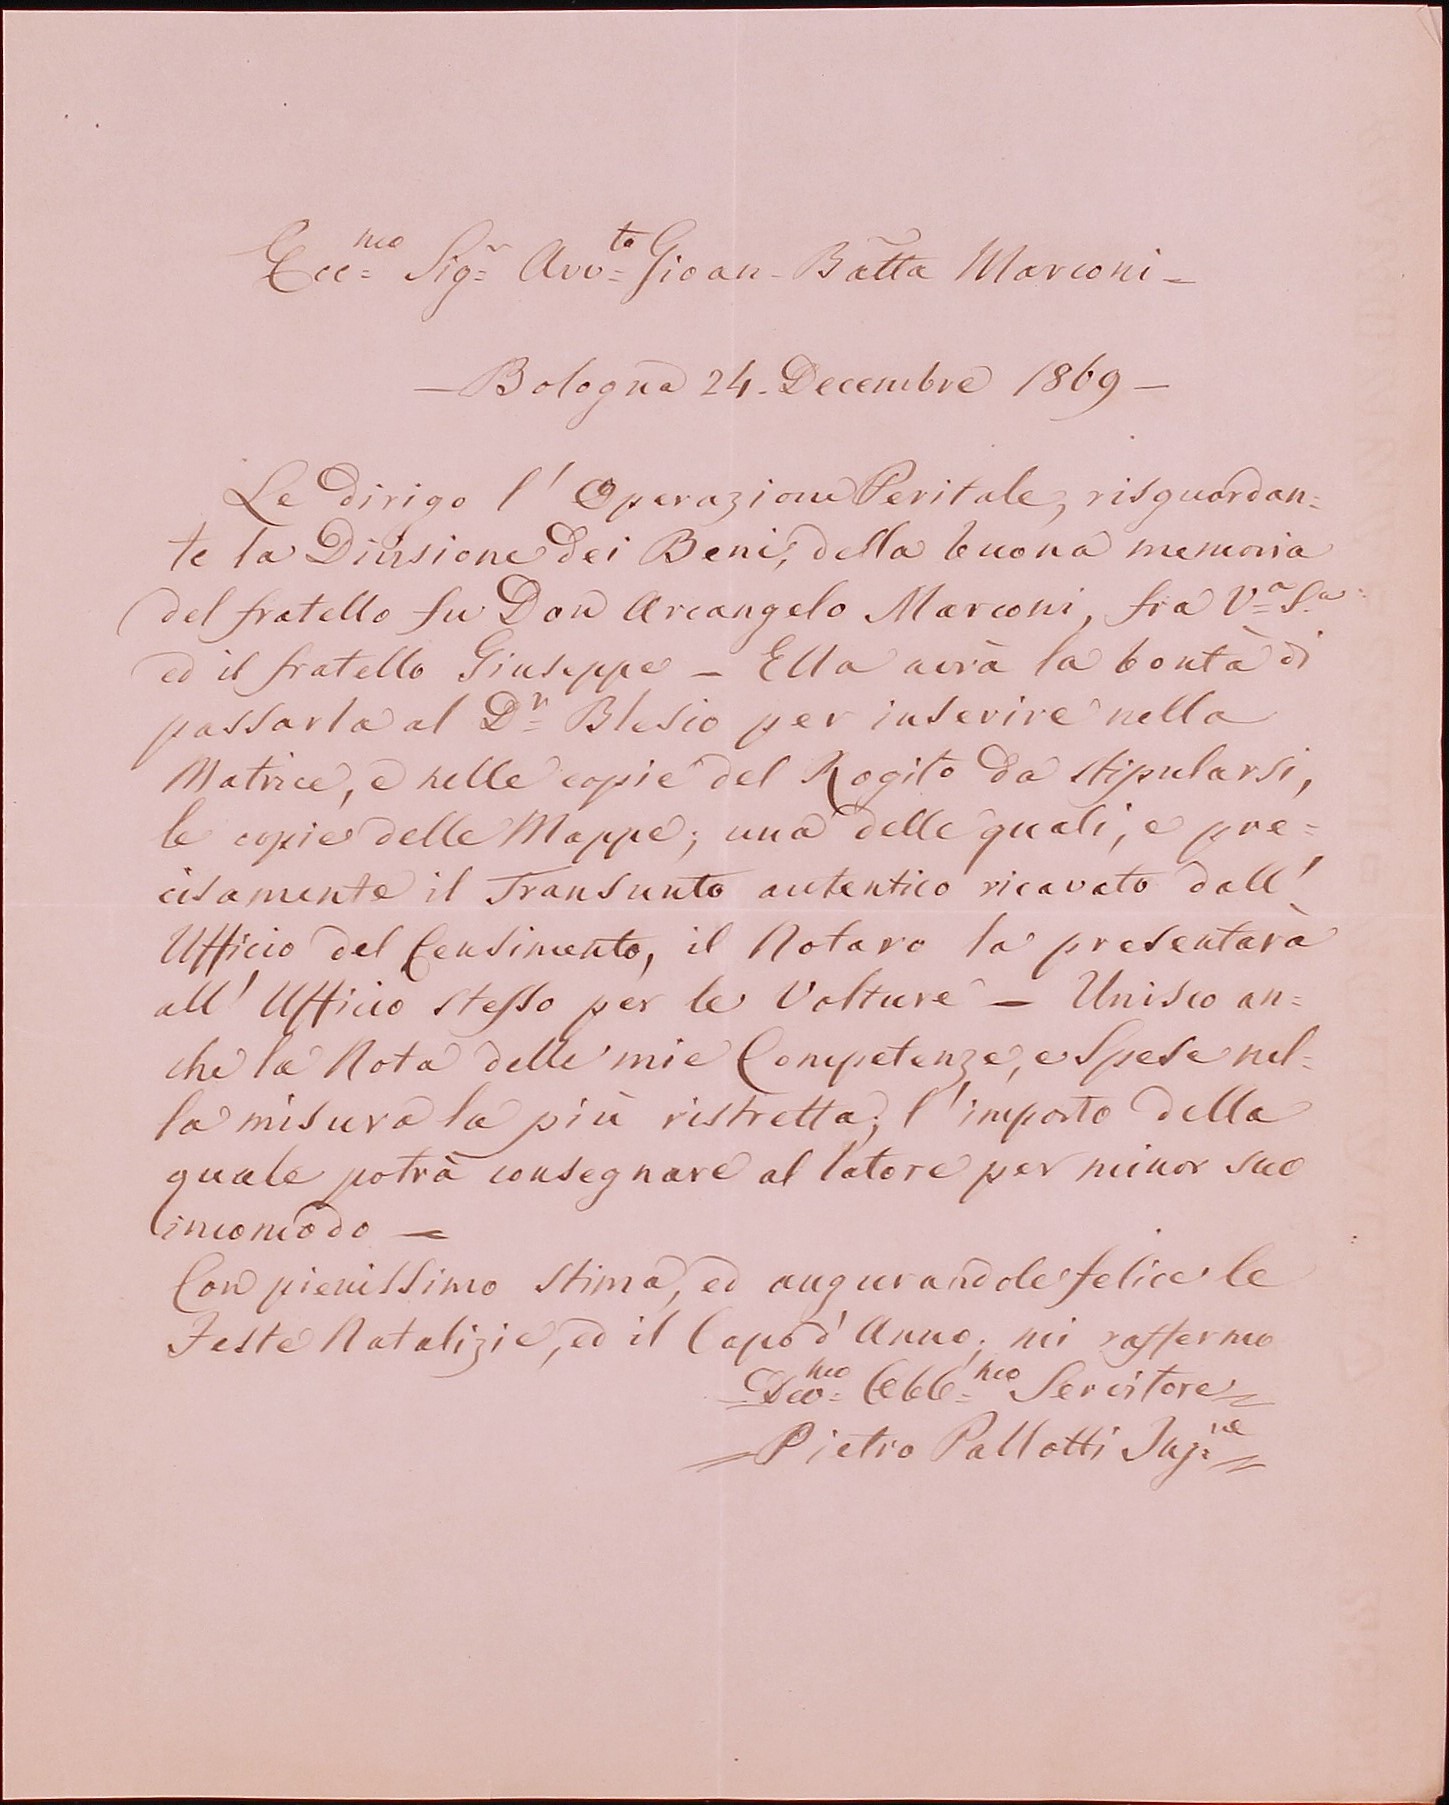 Ecc.mo Sig.r Avv.to Gioan-Batta Marconi -
- Bologna 24. Decembre 1869 -
Le dirigo l' Operazione Peritale, risguardan=
te la Divisione dei Beni, della buona memoria
del fratello fu Don Arcangelo Marconi, fra V.a S.a
ed il fratello Giuseppe - Ella avrà la bontà di
passarla al D.r Blesio per inserire nella
Matrice, e nelle copie del Rogito da stipularsi,
le copie delle Mappe; una delle quali, e pre=
cisamente il Transunto autentico ricavato dall'
Ufficio del Censimento, il Notaro la presentarà
all' Ufficio stesso per le Volture - Unisco an=
che la Nota delle mie Competenze, e Spese nel=
la misura la più ristretta; l' importo della
quale potrà consegnare al latore per minor suo
incomodo -
Con pienissimo stima, ed augurandole felice le
Feste Natalizie, ed il Capo d' Anno, mi raffermo
Dev.mo Obb.mo Servitore
Pietro Pallotti Ing.re